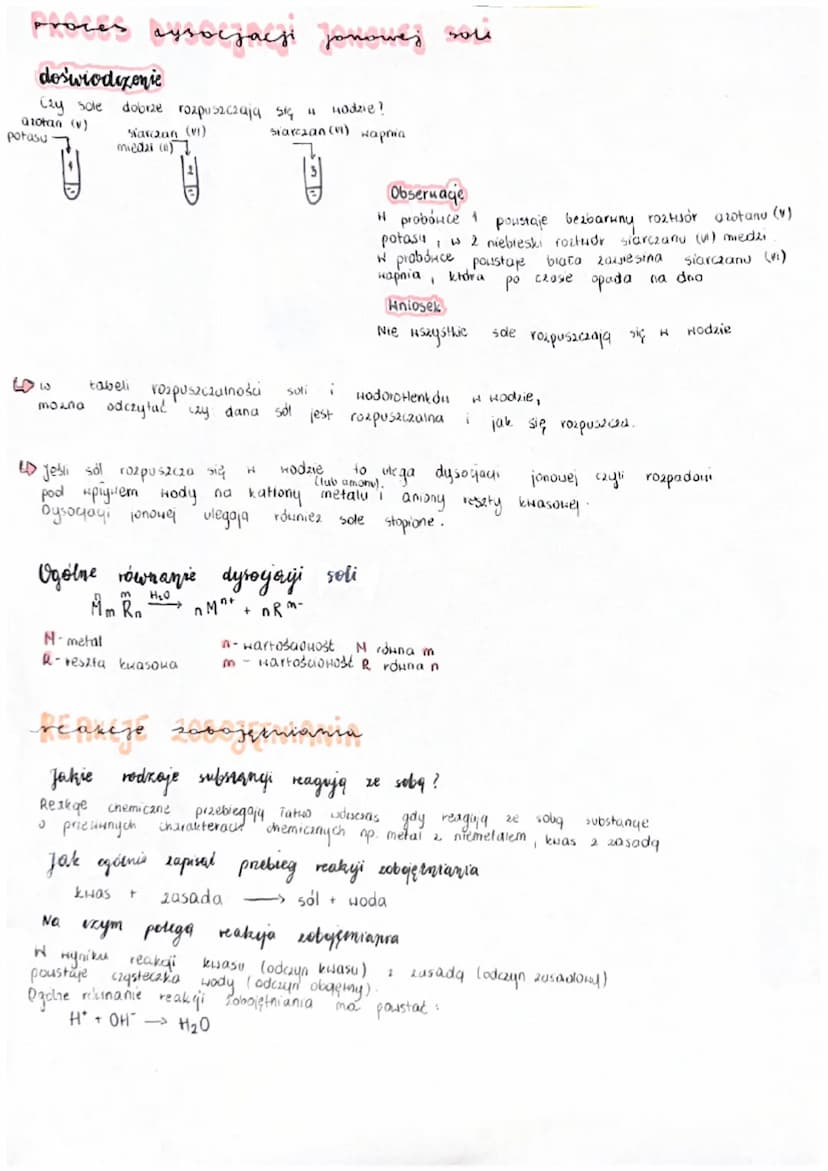 PROCES DYSOCJACJI JONOWEJ SOLI
doświadczenie
Czy sole dobrze rozpuszczają się w wodzie?
azotan (V)
potasu
siarczan (VI)
miedzi (II)
siarczan (VI) wapnia
1
2
3
Obserwacje
W probówce 1 powstaje bezbarwny roztwór azotanu (V)
potasu, w 2 niebieski roztwór siarczanu (VI) miedzi.
W probówce powstaje biała zawiesina siarczanu (VI)
wapnia, która po czasie opada na dno
Wniosek
Nie wszystkie sole rozpuszczają się w wodzie
w tabeli rozpuszczalności soli i wodorotlenków w wodzie,
można odczytać czy dana sól jest rozpuszczalna i jak się rozpuszcza.
Jeśli sól rozpuszcza się w wodzie to ulega dysocjacji jonowej czyli rozpadowi
(lub amonu)
pod wpływem wody na kationy metalu i aniony reszty kwasowej.
Dysocjacji jonowej ulegają również sole stopione.
Ogólne równanie dysocjacji soli
n m H₂O
MmRn ⟶ nMⁿ⁺ + nRᵐ⁻
M - metal
R - reszta kwasowa
n - wartościowość M równa m
m - wartościowość R równa n
REAKCJE ZOBOJĘTNIANIA
Jakie rodzaje substancji reagują ze sobą?
Reakcje chemiczne przebiegają łatwo wówczas gdy reagują ze sobą substancje
o przeciwnych charakterach chemicznych np. metal z niemetalem, kwas z zasadą
Jak ogólnie zapisać przebieg reakcji zobojętniania
kwas + zasada ⟶ sól + woda
Na czym polega reakcja zobojętniania
W wyniku reakcji kwasu (odczyn kwasu) z zasadą (odczyn zasadowy)
powstaje cząsteczka wody (odczyn obojętny).
Ogólne równanie reakcji zobojętniania ma postać:
H⁺ + OH⁻ → H₂O